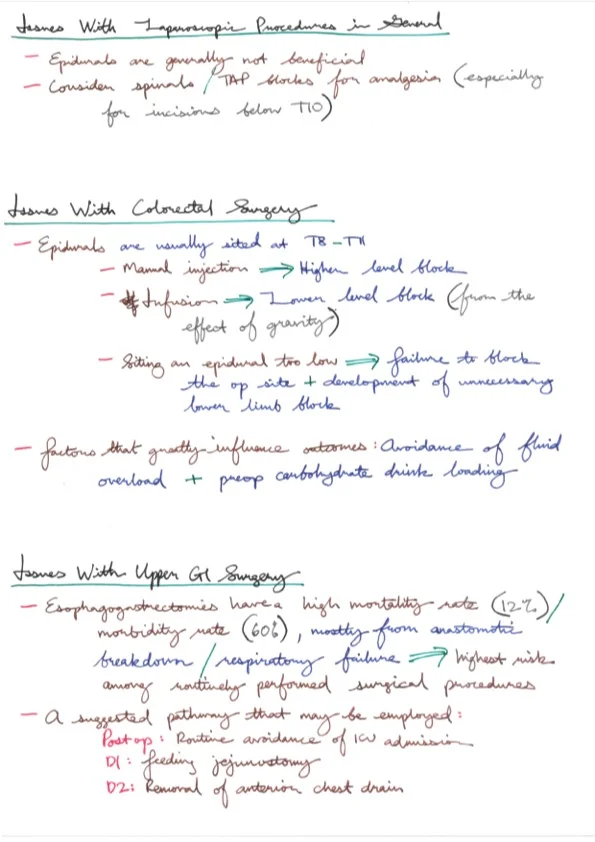 Issues With Laparoscopic Procedures in General
- Epidurals are generally not beneficial
- Consider spinals / TAP blocks for analgesia (especially
for incisions below T10)
Issues With Colorectal Surgery
- Epidurals are usually sited at T8-T11
- Manual injection ⇒ Higher level block
- Infusion ⇒ Lower level block (from the
effect of gravity)
- Siting an epidural too low ⇒ failure to block
the op site + development of unnecessary
lower limb block
- Factors that greatly influence outcomes: Avoidance of fluid
overload + preop carbohydrate drink loading
Issues With Upper GI Surgery
- Esophagogastrectomies have a high mortality rate (12%)/
morbidity rate (60%), mostly from anastomotic
breakdown / respiratory failure ⇒ highest risk
among routinely performed surgical procedures
- A suggested pathway that may be employed:
Postop: Routine avoidance of ICU admission
D1: feeding jejunostomy
D2: Removal of anterior chest drain